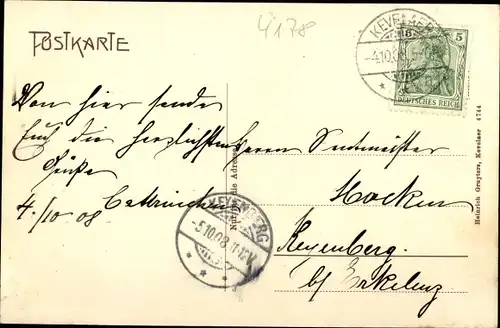 4178
POSTKARTE
KEVELAER
-4.10.08
5
DEUTSCHES REICH
Von hier sende
Euch die herzlichsten
Grüße
4./10 08
Nur für die Adresse
Herrn Rentmeister
Hocken
Keyenberg.
b/ Erkelenz
KEYENBERG
-5.10.08.11-12V
Heinrich Gruyters, Kevelaer 4744